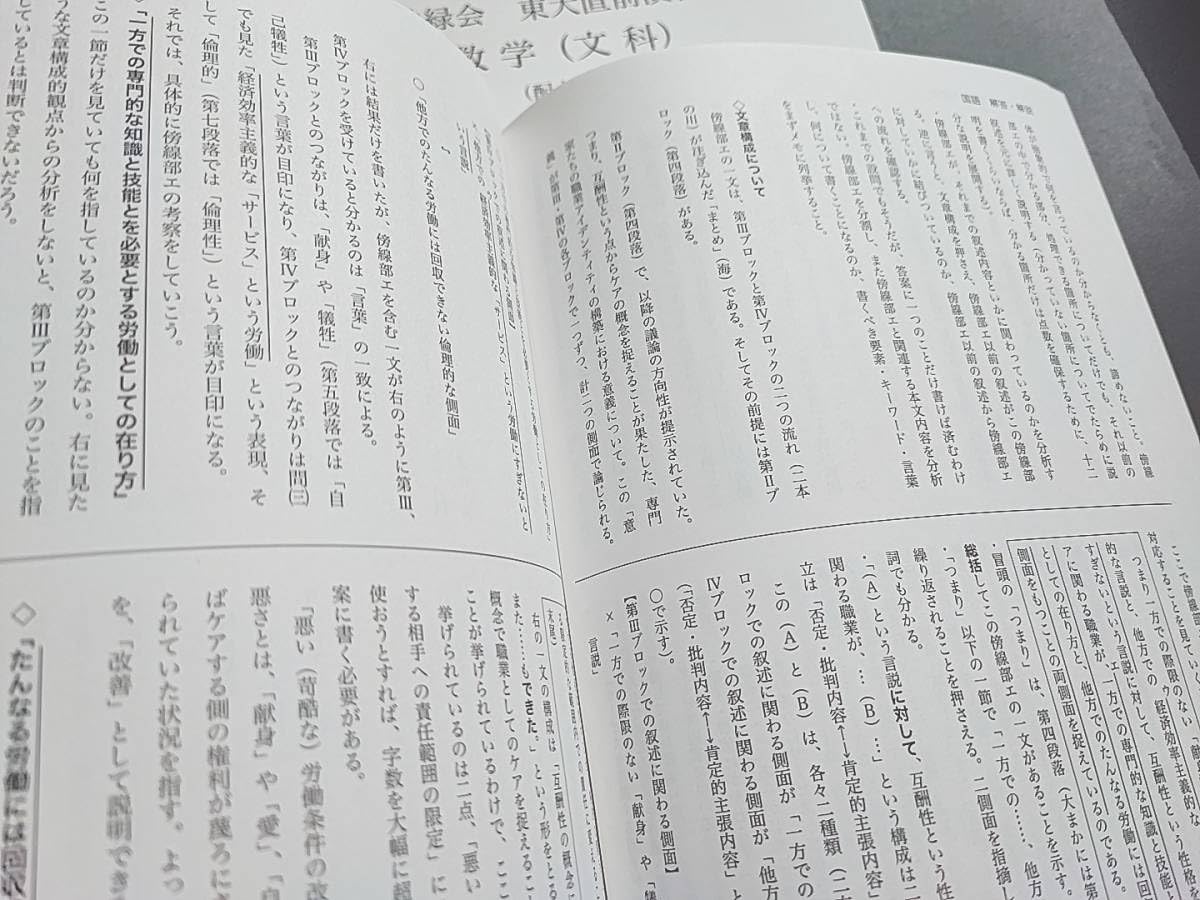 緑会 東大直前
数学（文科）
国語 解答・解説
体が抽象的で何を言っているのか分からなくとも、諦めないこと。傍線
部エの中で分かる部分、処理できる箇所についてだけでも、それ以前の
叙述を元に詳しく説明する（分かっていない箇所についてでたらめに説
明を書くくらいならば、分かる箇所だけは点数を確保するために、十二
分な説明を展開する）。
傍線部エが、それまでの叙述内容といかに関わっているのかを分析す
る。逆に言うと、文章構成を押さえ、傍線部エ以前の叙述がこの傍線部
に対していかに結びついているのか、傍線部エ以前の叙述から傍線部エ
への流れを確認する。
・これまでの設問でもそうだが、答案に一つのことだけ書けば済むわけ
ではない。傍線部エを分割し、また傍線部エと関連する本文内容を分析
し、何について書くことになるのか、書くべき要素・キーワード・言葉
をまずメモに列挙すること。
◇文章構成について
傍線部エの一文は、第Ⅲブロックと第Ⅳブロックの二つの流れ（二本
の川）が注ぎ込んだ「まとめ」（海）である。そしてその前提には第Ⅱブ
ロック（第四段落）がある。
第Ⅱブロック（第四段落）で、以降の議論の方向性が提示されていた。
つまり、互酬性という点からケアの概念を捉えることが果たした、専門
家たちの職業アイデンティティの構築における意義について。この「意
義」が第Ⅲ・第Ⅳの各ブロックで一つずつ、計二つの側面で論じられる。
ここで傍線部
対応することを見ていく
一方での際限のない「献身
つまり一方での際限のない
的な言説と、他方での経済効率主義的な
すぎないという言説に対して、互酬性という性格を
アに関わる職業が、一方での専門的な知識と技能と
としての在り方と、他方でのたんなる労働には回
側面をもつことの両側面を捉えているのである。
・冒頭の「つまり」は、第四段落（大まかには第
総括してこの傍線部エの一文があることを示す。
・「つまり」以下の一節で「一方での……、他方
繰り返されることを押さえる。二側面を指摘し
詞でも分かる。
・「（A）という言説に対して、互酬性という性
関わる職業が、…（B）…」という構成は二
立は「否定・批判内容⟷肯定的主張内容」
この（A）と（B）は、各々二種類（二
ロックでの叙述に関わる側面が「一方での
Ⅳブロックでの叙述に関わる側面が「他方
（「否定・批判内容⟷肯定的主張内容」と
〇で示す）。
【第Ⅲブロックでの叙述に関わる側面】
×「一方での際限のない「献身」や「犠
言説」
〇「他方でのたんなる労働には回収できない倫理的な側面」
右には結果だけを書いたが、傍線部エを含む一文が右のように第Ⅲ、
第Ⅳブロックを受けていると分かるのは「言葉」の一致による。
第Ⅲブロックとのつながりは、「献身」や「犠牲」（第五段落では「自
己犠牲」）という言葉が目印になり、第Ⅳブロックとのつながりは問㈢
でも見た「経済効率主義的な「サービス」という労働」という表現、そ
して「倫理的」（第七段落では「倫理性」）という言葉が目印になる。
それでは、具体的に傍線部エの考察をしていこう。
◇「一方での専門的な知識と技能とを必要とする労働としての在り方」
この一節だけを見ていても何を指しているのか分からない。右に見た
うな文章構成的観点からの分析をしないと、第Ⅲブロックのことを指
しているとは判断できないだろう。
右の一文の構成は「互酬性の概念に
また……もできた。」という形をと
概念で職業としてのケアを捉えるこ
ことが挙げられているわけで、ここ
挙げられているのは二点、「悪い
する相手への責任範囲の限定」に
使おうとすれば、字数を大幅に超
案に書く必要がある。
「悪い（苛酷な）労働条件の改
悪さとは、「献身」や「愛」、「自
ばケアする側の権利が蔑ろにさ
られていた状況を指す。よっ
を、「改善」として説明でき
◇「たんなる労働には回収